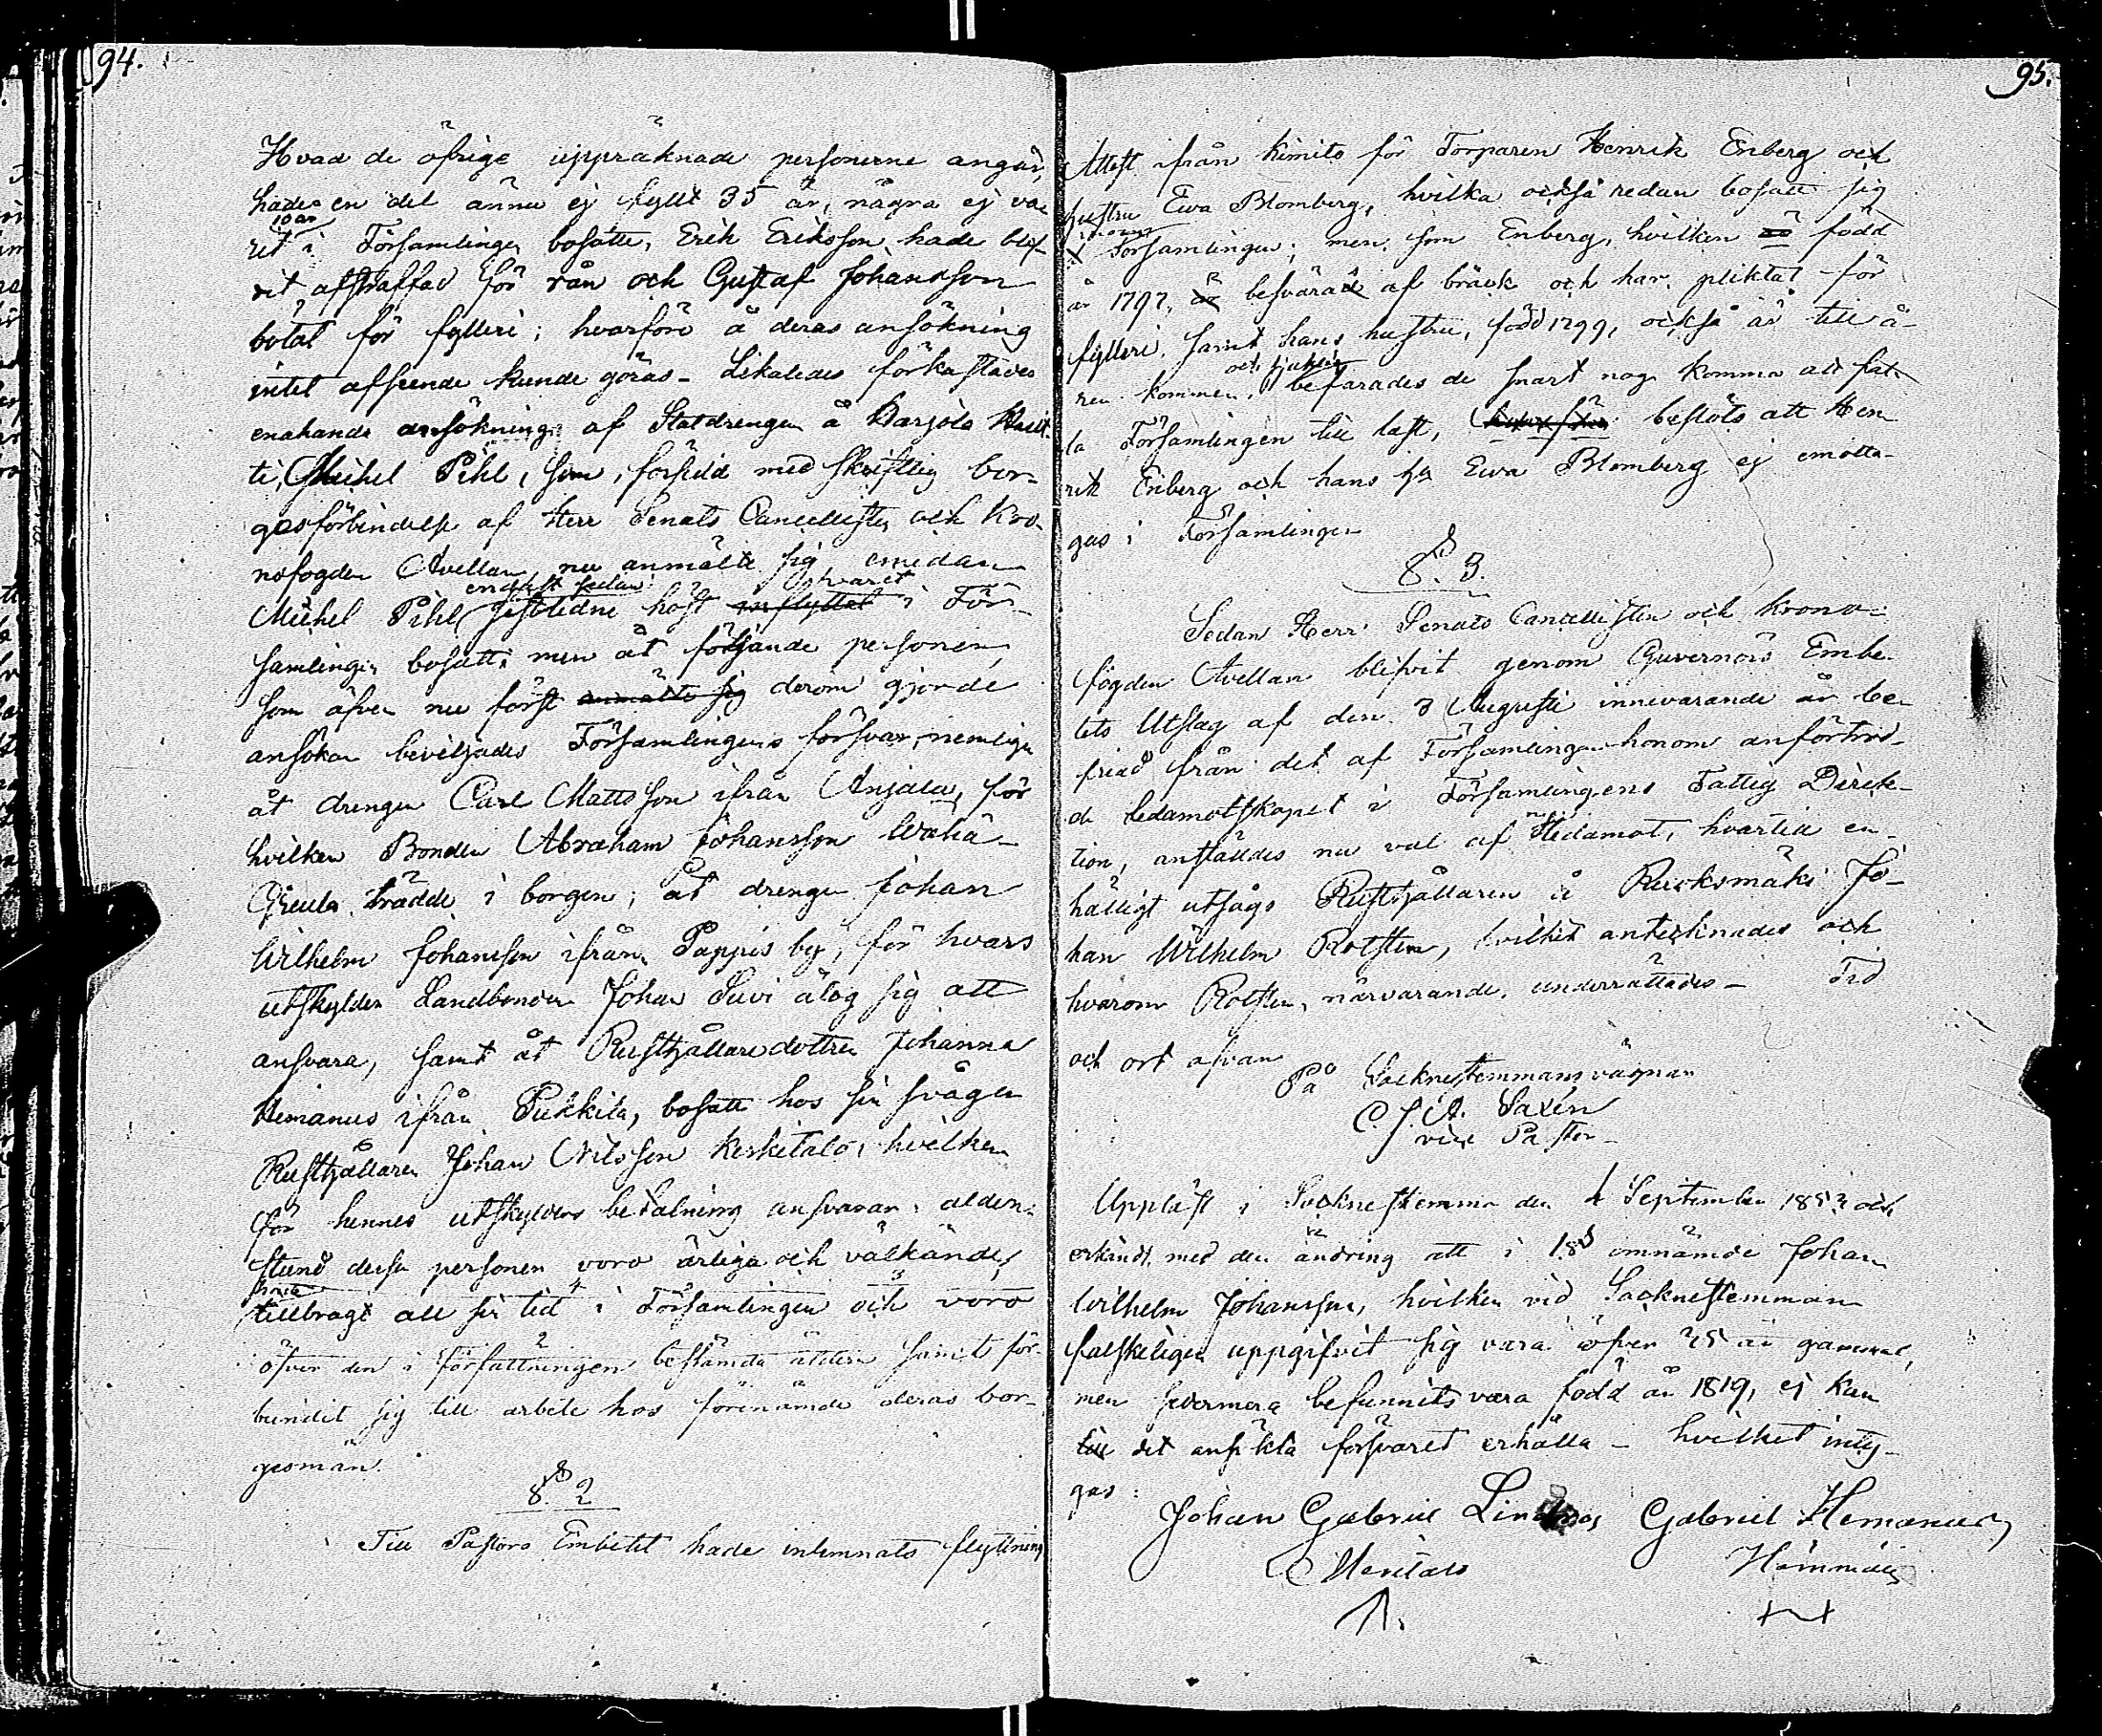 94.
Hvad de öfrige uppräknade personerne angår,
hade en del ännu ej fyllt 35 år, några ej va-
10 år
rit i Församlingen bosatte, Erik Eriksson hade blif-
vit afstraffad för rån och Gustaf Johansson
botat för fylleri; hvarföre å deras ansökning
intet afseende kunde göras - Likaledes förkastades
enahanda ansökning af Statdrengen å Karjola
ti, Michel Pihl, som, försedd med skriftlig bor-
gesförbindelse af Herr Senats Cancellisten och Kro-
nofogden Avellan, nu anmälte sig emedan
endast sedan varit
Michel Pihl sistledne höst inflyttat i För-
samlingen bosatt; men åt följande personer,
som äfven nu först anmälte sig derom gjorde
ansökan beviljades Församlingens försvar, nemligen
åt drengen Carl Mattsson ifrån Anjala, för
hvilken Bonden Abraham Johansson Wähä-
Greula trädde i borgen; åt drengen Johan
Wilhelm Johansson ifrån Pappis by, för hvars
utskylder Landbonden Johan Suvi åtog sig att
ansvara, samt åt Rusthållaredottren Johanna
Hemanus ifrån Pukkila, bosatt hos sin svåger
Rusthållaren Johan Nilsson Keskitalo, hvilken
för hennes utskylders betalning ansvarar; alden-
stund dessa personer voro ärliga och välkände,
tillbragt all sin tid i Församlingen och voro
öfver den i författningen bestämda åldren samt för-
bundit sig till arbete hos förenämde deras bor-
gesmän.
§. 2
Till Pastors Embetet hade inlemnats flyttnings
95.
Attest ifrån Kimito för Torparen Henrik Enberg och
hustru Ewa Blomberg, hvilka också redan bosatt sig
i Församlingen; men, som Enberg, hvilken är född
år 1797, är besvärad af bråck och har pliktat för
fylleri, samt hans hustru, född 1799, också är till å-
ren kommen, och sjuklig befarades de snart nog komma att fal-
la Församlingen till last, beslöts att Hen-
rik Enberg och hans hu Ewa Blomberg ej emotta-
gas i Församlingen
§. 3.
Sedan Herr Senats Cancellisten och Krono-
fogden Avellan blifvit genom Guvernörs Embe-
tets Utslag af den 3 Augusti innevarande år be-
friad från det af Församlingen honom anförtrod-
de Ledamotskapet i Församlingens Fattig Direk-
tion, anställdes nu val af ny Ledamot, hvartill en-
hälligt utsågs Rusthållaren å Ruoksmäki Jo-
han Wilhelm Rotsten, hvilket antecknades och
hvarom Rotsten, närvarande, underrättades - Tid
och ort ofvan
På Socknestemmans vägnar
C. J. A. Saxén
vice Pastor
Uppläst i Sockne stemma den 4 September 1853 och
erkändt med den ändring att i 1 § omnämde Johan
Wilhelm Johansson, hvilken vid Socknestemman
falskeligen uppgifvit sig vara öfver 35 år gammal,
men sedermera befunnits vara född år 1819, ej kan
det ansökta försvaret erhålla - hvilket inty-
gas:
Johan Gabriel Lindroos Gabriel Hemanus